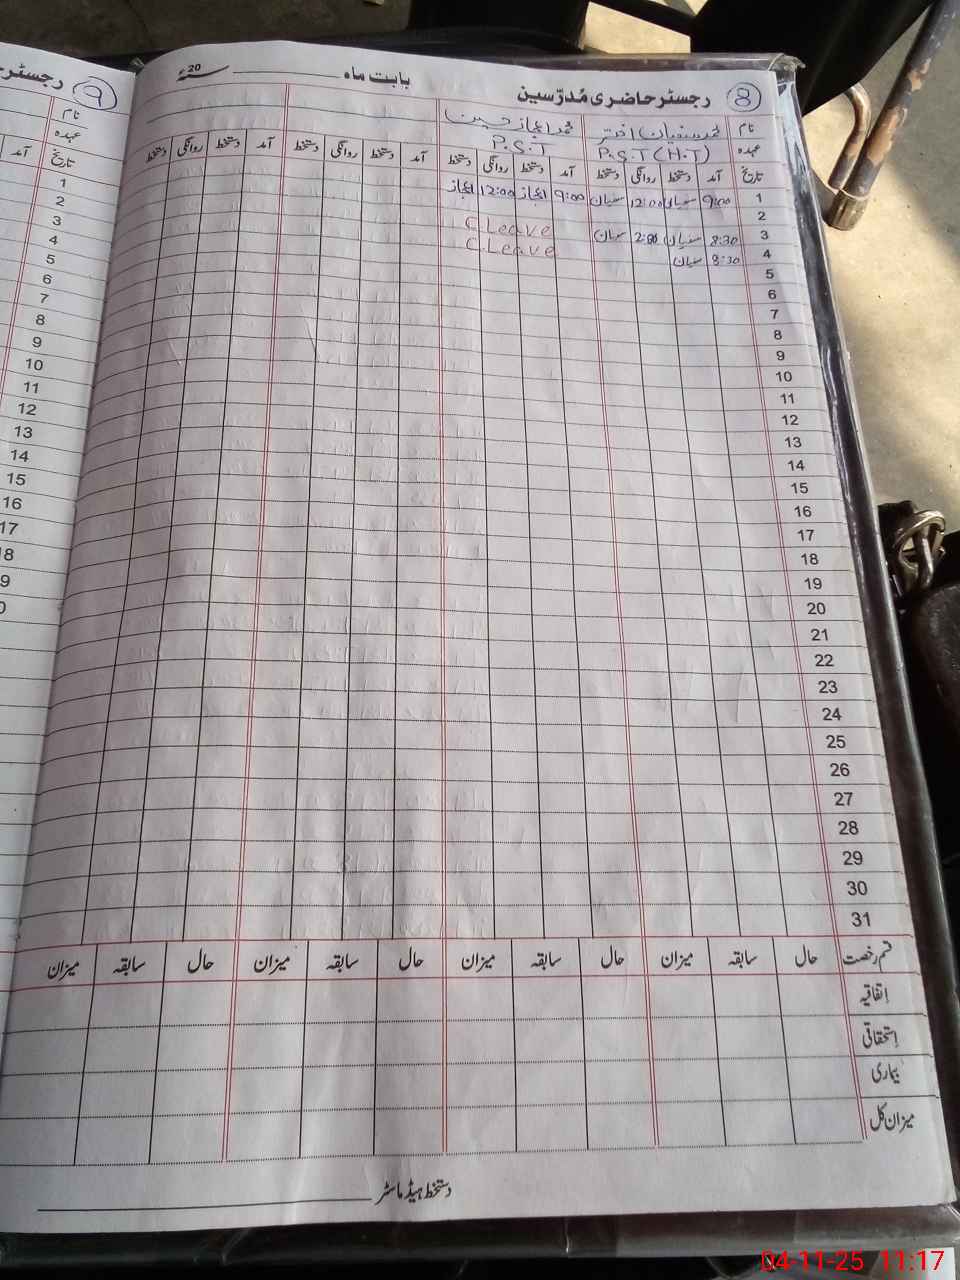 رجسٹر حاضری مُدرّسین بابت ماہ سنہ 20ء
8
نام محمد سفیان اختر محمد اعجاز حسین
عہدہ P.S.T (H.T) P.S.T
تاریخ آمد دستخط روانگی دستخط آمد دستخط روانگی دستخط آمد دستخط روانگی دستخط آمد دستخط روانگی دستخط
1 9:00 سفیان 12:00 سفیان 9:00 اعجاز 12:00 اعجاز
2
3 8:30 سفیان 2:00 سفیان C Leave
4 8:30 سفیان C Leave
5
6
7
8
9
10
11
12
13
14
15
16
17
18
19
20
21
22
23
24
25
26
27
28
29
30
31
قسم رخصت حال سابقہ میزان حال سابقہ میزان حال سابقہ میزان حال سابقہ میزان
اتفاقیہ
استحقاقی
بیماری
میزان کل
دستخط ہیڈ ماسٹر
9
نام
عہدہ
تاریخ آمد
1
2
3
4
5
6
7
8
9
10
11
12
13
14
15
16
17
18
04-11-25 11:17